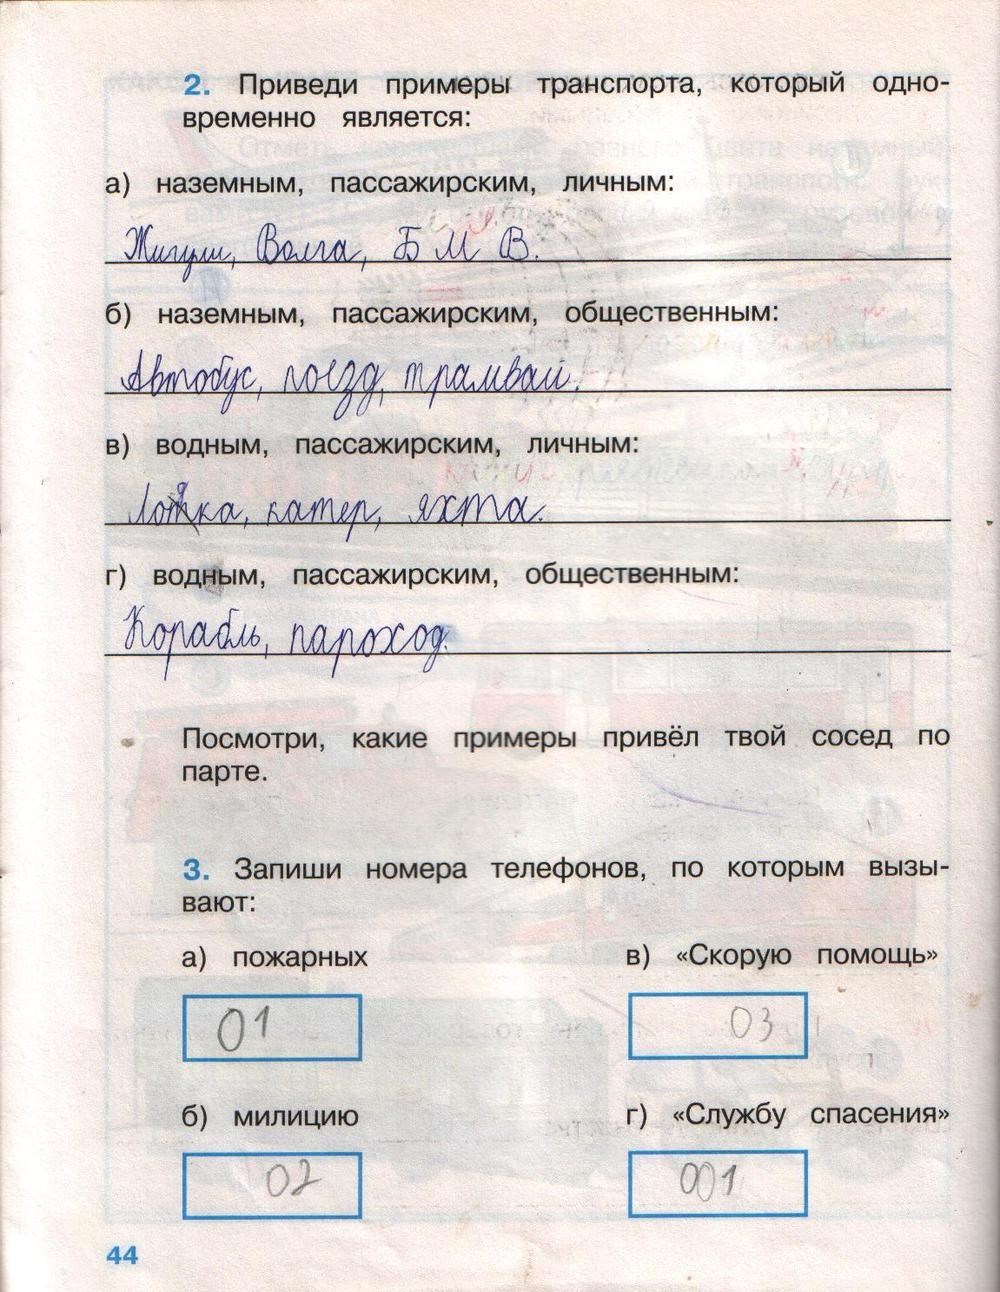 2. Приведи примеры транспорта, который одно-
временно является:
а) наземным, пассажирским, личным:
Жигули, Волга, Б М В.
б) наземным, пассажирским, общественным:
Автобус, поезд, трамвай.
в) водным, пассажирским, личным:
Лодка, катер, яхта.
г) водным, пассажирским, общественным:
Корабль, пароход.
Посмотри, какие примеры привёл твой сосед по
парте.
3. Запиши номера телефонов, по которым вызы-
вают:
а) пожарных в) «Скорую помощь»
01 03
б) милицию г) «Службу спасения»
02 001
44